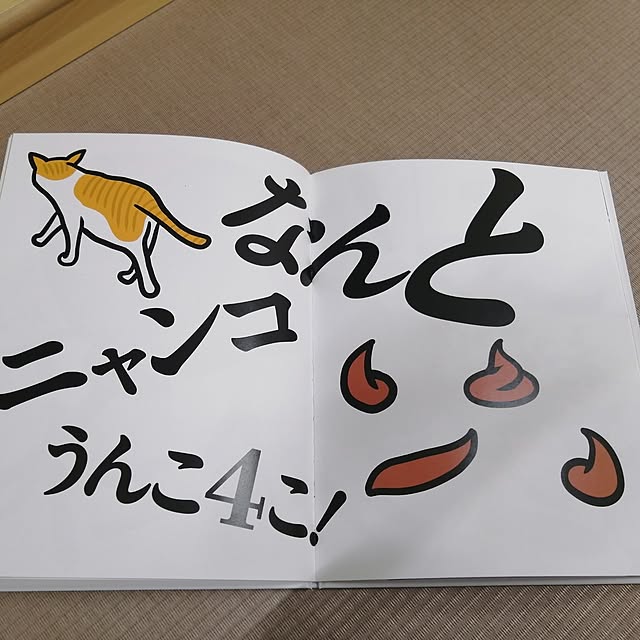 なんと
ニャンコ
うんこ4こ!